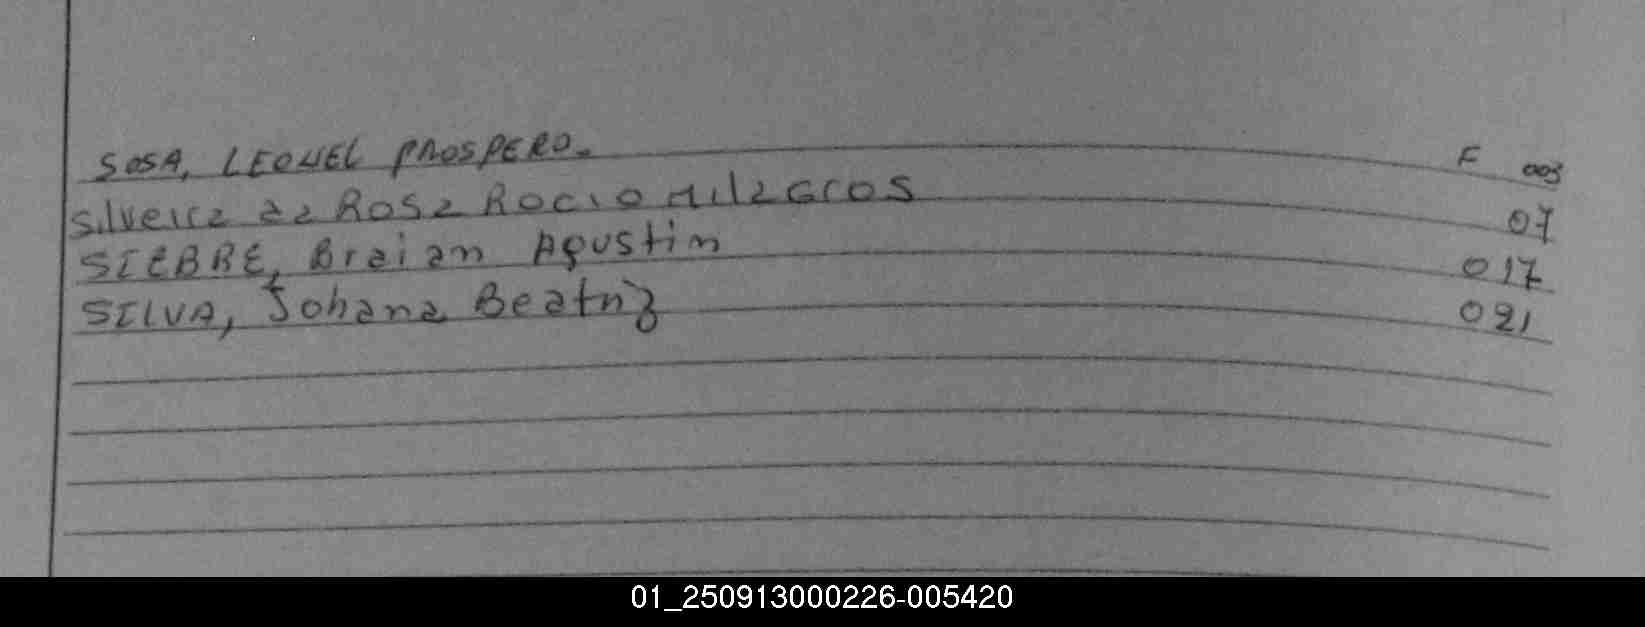 SOSA, LEONEL PROSPERO. F 003
Silveira da Rosa Rocio Milagros 07
SIEBRE, Braian Agustin 017
SILVA, Johana Beatriz 021
01_250913000226-005420